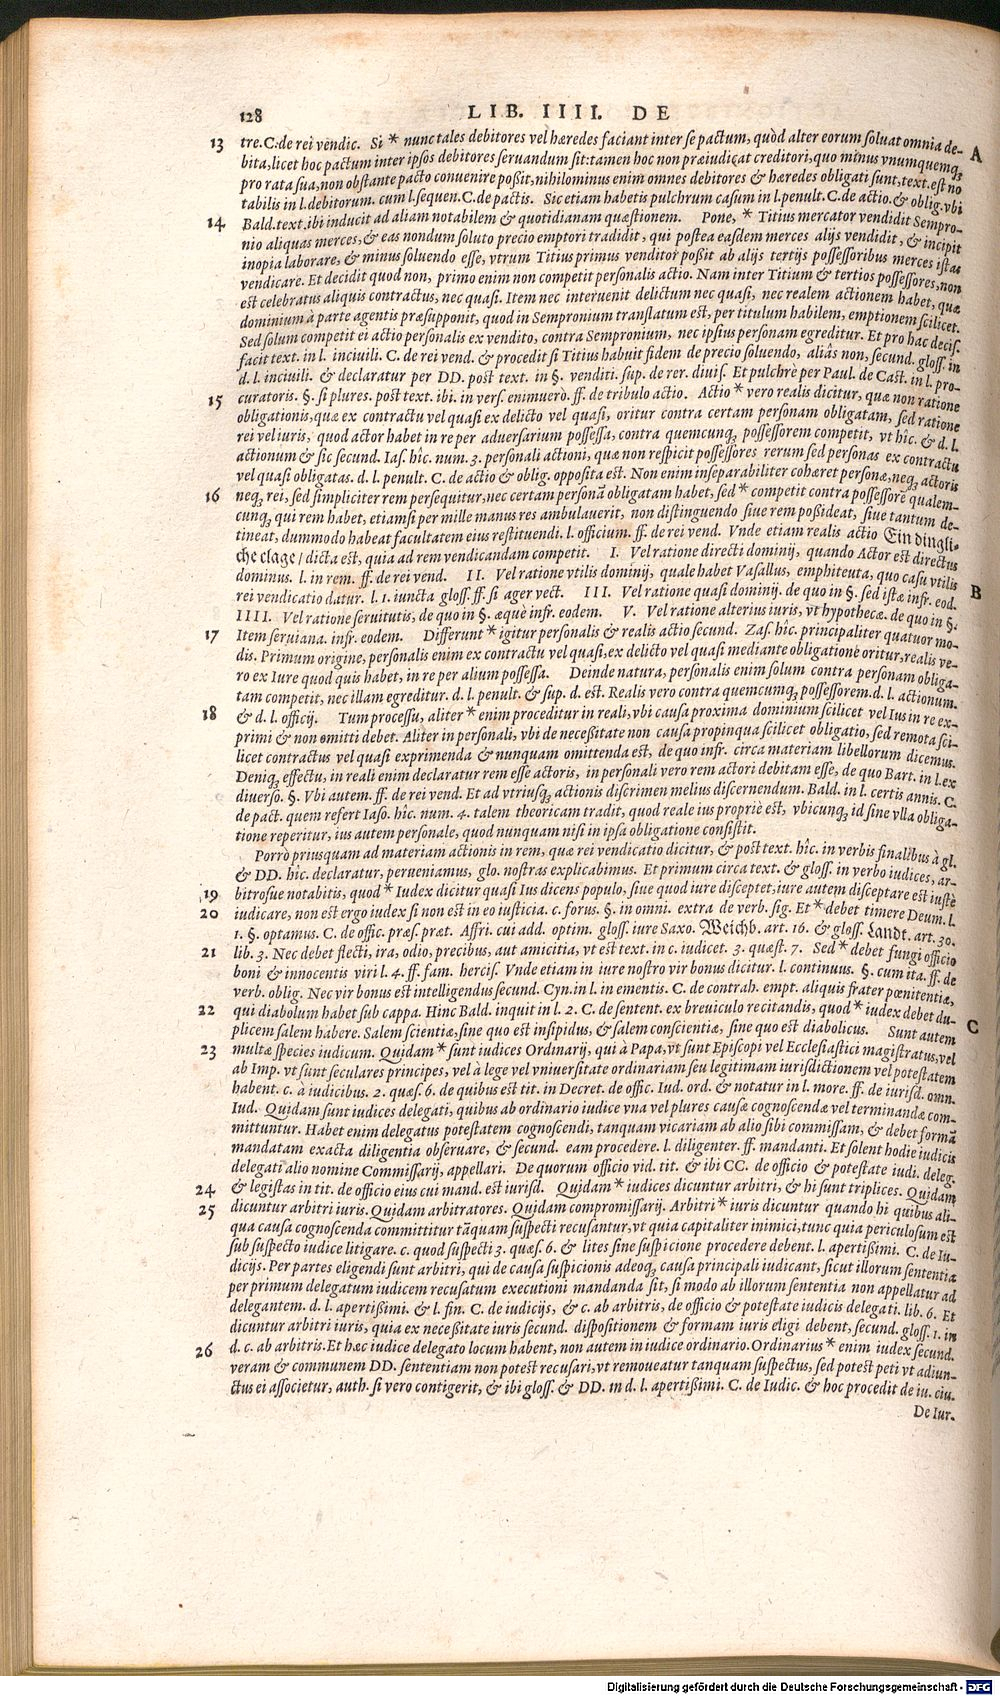 128 LIB. IIII. DE
13 tre. C. de rei vendic. Si * nunc tales debitores vel hæredes faciant inter se pactum, quòd alter eorum soluat omnia de- A
bita, licet hoc pactum inter ipsos debitores seruandum sit: tamen hoc non præiudicat creditori, quo minus vnumquemq;
pro rata sua, non obstante pacto conuenire poßit, nihilominus enim omnes debitores & hæredes obligati sunt, text. est no
tabilis in l. debitorum. cum l. sequen. C. de pactis. Sic etiam habetis pulchrum casum in l. penult. C. de actio. & oblig. vbi
14 Bald. text. ibi inducit ad aliam notabilem & quotidianam quæstionem. Pone, * Titius mercator vendidit Sempro-
nio aliquas merces, & eas nondum soluto precio emptori tradidit, qui postea easdem merces alijs vendidit, & incipit
inopia laborare, & minus soluendo esse, vtrum Titius primus venditor poßit ab alijs tertijs possessoribus merces istas
vendicare. Et decidit quod non, primo enim non competit personalis actio. Nam inter Titium & tertios possessores, non
est celebratus aliquis contractus, nec quasi. Item nec interuenit delictum nec quasi, nec realem actionem habet, quæ
dominium à parte agentis præsupponit, quod in Sempronium translatum est, per titulum habilem, emptionem scilicet.
Sed solum competit ei actio personalis ex vendito, contra Sempronium, nec ipsius personam egreditur. Et pro hac decis.
facit text. in l. inciuili. C. de rei vend. & procedit si Titius habuit fidem de precio soluendo, aliâs non, secund. gloss. in
d. l. inciuili. & declaratur per DD. post text. in §. venditi. sup. de rer. diuis. Et pulchrè per Paul. de Cast. in l. pro-
curatoris. §. si plures. post text. ibi. in vers. enimuerò. ff. de tribulo actio. Actio * vero realis dicitur, quæ non ratione
15 obligationis, quæ ex contractu vel quasi ex delicto vel quasi, oritur contra certam personam obligatam, sed ratione
rei vel iuris, quod actor habet in re per aduersarium possessa, contra quemcunq; possessorem competit, vt hîc. & d. l.
actionum & sic secund. Ias. hîc. num. 3. personali actioni, quæ non respicit possessores rerum sed personas ex contractu
vel quasi obligatas. d. l. penult. C. de actio & oblig. opposita est. Non enim inseparabiliter cohæret personæ, neq; actoris
16 neq; rei, sed simpliciter rem persequitur, nec certam personã obligatam habet, sed * competit contra possessorẽ qualem-
cunq; qui rem habet, etiamsi per mille manus res ambulauerit, non distinguendo siue rem poßideat, siue tantum de-
tineat, dummodo habeat facultatem eius restituendi. l. officium. ff. de rei vend. Vnde etiam realis actio Ein dingli-
che clage / dicta est, quia ad rem vendicandam competit. I. Vel ratione directi dominij, quando Actor est directus
dominus. l. in rem. ff. de rei vend. II. Vel ratione vtilis dominij, quale habet Vasallus, emphiteuta, quo casu vtilis
rei vendicatio datur. l. 1. iuncta gloss. ff. si ager vect. III. Vel ratione quasi dominij. de quo in §. sed istæ infr. eod. B
IIII. Vel ratione seruitutis, de quo in §. æquè infr. eodem. V. Vel ratione alterius iuris, vt hypothecæ. de quo in §.
17 Item seruiana. infr. eodem. Differunt * igitur personalis & realis actio secund. Zas. hîc. principaliter quatuor mo-
dis. Primum origine, personalis enim ex contractu vel quasi, ex delicto vel quasi mediante obligatione oritur, realis ve-
ro ex Iure quod quis habet, in re per alium possessa. Deinde natura, personalis enim solum contra personam obliga-
tam competit, nec illam egreditur. d. l. penult. & sup. d. est. Realis vero contra quemcumq; possessorem. d. l. actionum.
18 & d. l. officij. Tum processu, aliter * enim proceditur in reali, vbi causa proxima dominium scilicet vel Ius in re ex-
primi & non omitti debet. Aliter in personali, vbi de neceßitate non causa propinqua scilicet obligatio, sed remota sci-
licet contractus vel quasi exprimenda & nunquam omittenda est, de quo infr. circa materiam libellorum dicemus.
Deniq; effectu, in reali enim declaratur rem esse actoris, in personali vero rem actori debitam esse, de quo Bart. in l. ex
diuerso. §. Vbi autem. ff. de rei vend. Et ad vtriusq; actionis discrimen melius discernendum. Bald. in l. certis annis. C.
de pact. quem refert Iaso. hîc. num. 4. talem theoricam tradit, quod reale ius propriè est, vbicunq; id sine vlla obliga-
tione reperitur, ius autem personale, quod nunquam nisi in ipsa obligatione consistit.
Porrò priusquam ad materiam actionis in rem, quæ rei vendicatio dicitur, & post text. hîc. in verbis finalibus à gl.
& DD. hîc. declaratur, perueniamus, glo. nostras explicabimus. Et primum circa text. & gloss. in verbo iudices, ar-
19 bitrosue notabitis, quod * Iudex dicitur quasi Ius dicens populo, siue quod iure disceptet, iure autem disceptare est iustè
20 iudicare, non est ergo iudex si non est in eo iusticia. c. forus. §. in omni. extra de verb. sig. Et * debet timere Deum. l.
1. §. optamus. C. de offic. præf. præt. Affri. cui add. optim. gloss. iure Saxo. Weichb. art. 16. & gloss. Landt. art. 30.
21 lib. 3. Nec debet flecti, ira, odio, precibus, aut amicitia, vt est text. in c. iudicet. 3. quæst. 7. Sed * debet fungi officio
boni & innocentis viri l. 4. ff. fam. hercis. Vnde etiam in iure nostro vir bonus dicitur. l. continuus. §. cum ita. ff. de
verb. oblig. Nec vir bonus est intelligendus secund. Cyn. in l. in ementis. C. de contrah. empt. aliquis frater pœnitentiæ,
22 qui diabolum habet sub cappa. Hinc Bald. inquit in l. 2. C. de sentent. ex breuiculo recitandis, quod * iudex debet du- C
plicem salem habere. Salem scientiæ, sine quo est insipidus, & salem conscientiæ, sine quo est diabolicus. Sunt autem
23 multæ species iudicum. Quidam * sunt iudices Ordinarij, qui à Papa, vt sunt Episcopi vel Ecclesiastici magistratus, vel
ab Imp. vt sunt seculares principes, vel à lege vel vniuersitate ordinariam seu legitimam iurisdictionem vel potestatem
habent. c. à iudicibus. 2. quæs. 6. de quibus est tit. in Decret. de offic. Iud. ord. & notatur in l. more. ff. de iurisd. omn.
Iud. Quidam sunt iudices delegati, quibus ab ordinario iudice vna vel plures causæ cognoscendæ vel terminandæ com-
mittuntur. Habet enim delegatus potestatem cognoscendi, tanquam vicariam ab alio sibi commissam, & debet formã
mandatam exacta diligentia obseruare, & secund. eam procedere. l. diligenter. ff. mandanti. Et solent hodie iudicis
delegati alio nomine Commissarij, appellari. De quorum officio vid. tit. & ibi CC. de officio & potestate iudi. deleg.
24 & legistas in tit. de officio eius cui mand. est iurisd. Quidam * iudices dicuntur arbitri, & hi sunt triplices. Quidam
25 dicuntur arbitri iuris. Quidam arbitratores. Quidam compromissarij. Arbitri * iuris dicuntur quando hi quibus ali-
qua causa cognoscenda committitur tãquam suspecti recusantur, vt quia capitaliter inimici, tunc quia periculosum est
sub suspecto iudice litigare. c. quod suspecti 3. quæs. 6. & lites sine suspicione procedere debent. l. apertißimi. C. de Iu-
dicijs. Per partes eligendi sunt arbitri, qui de causa suspicionis adeoq; causa principali iudicant, sicut illorum sententia
per primum delegatum iudicem recusatum executioni mandanda sit, si modo ab illorum sententia non appellatur ad
delegantem. d. l. apertißimi. & l. fin. C. de iudicijs, & c. ab arbitris, de officio & potestate iudicis delegati. lib. 6. Et
dicuntur arbitri iuris, quia ex neceßitate iuris secund. dispositionem & formam iuris eligi debent, secund. gloss. 1. in
26 d. c. ab arbitris. Et hæc iudice delegato locum habent, non autem in iudice ordinario. Ordinarius * enim iudex secund.
veram & communem DD. sententiam non potest recusari, vt remoueatur tanquam suspectus, sed potest peti vt adiun-
ctus ei associetur, auth. si vero contigerit, & ibi gloss. & DD. in d. l. apertißimi. C. de Iudic. & hoc procedit de iu. ciu.
De Iur.
Digitalisierung gefördert durch die Deutsche Forschungsgemeinschaft - DFG